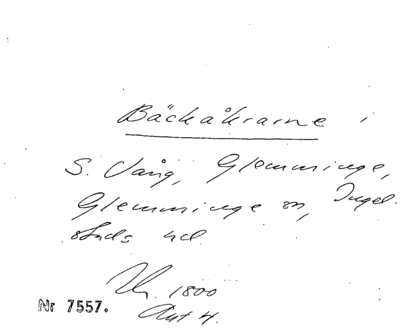 Bäckåkrarne i
S. Vång, Glemminge,
Glemminge sn, Ingel-
stads hd
1800
Akt 4.
Nr 7557.